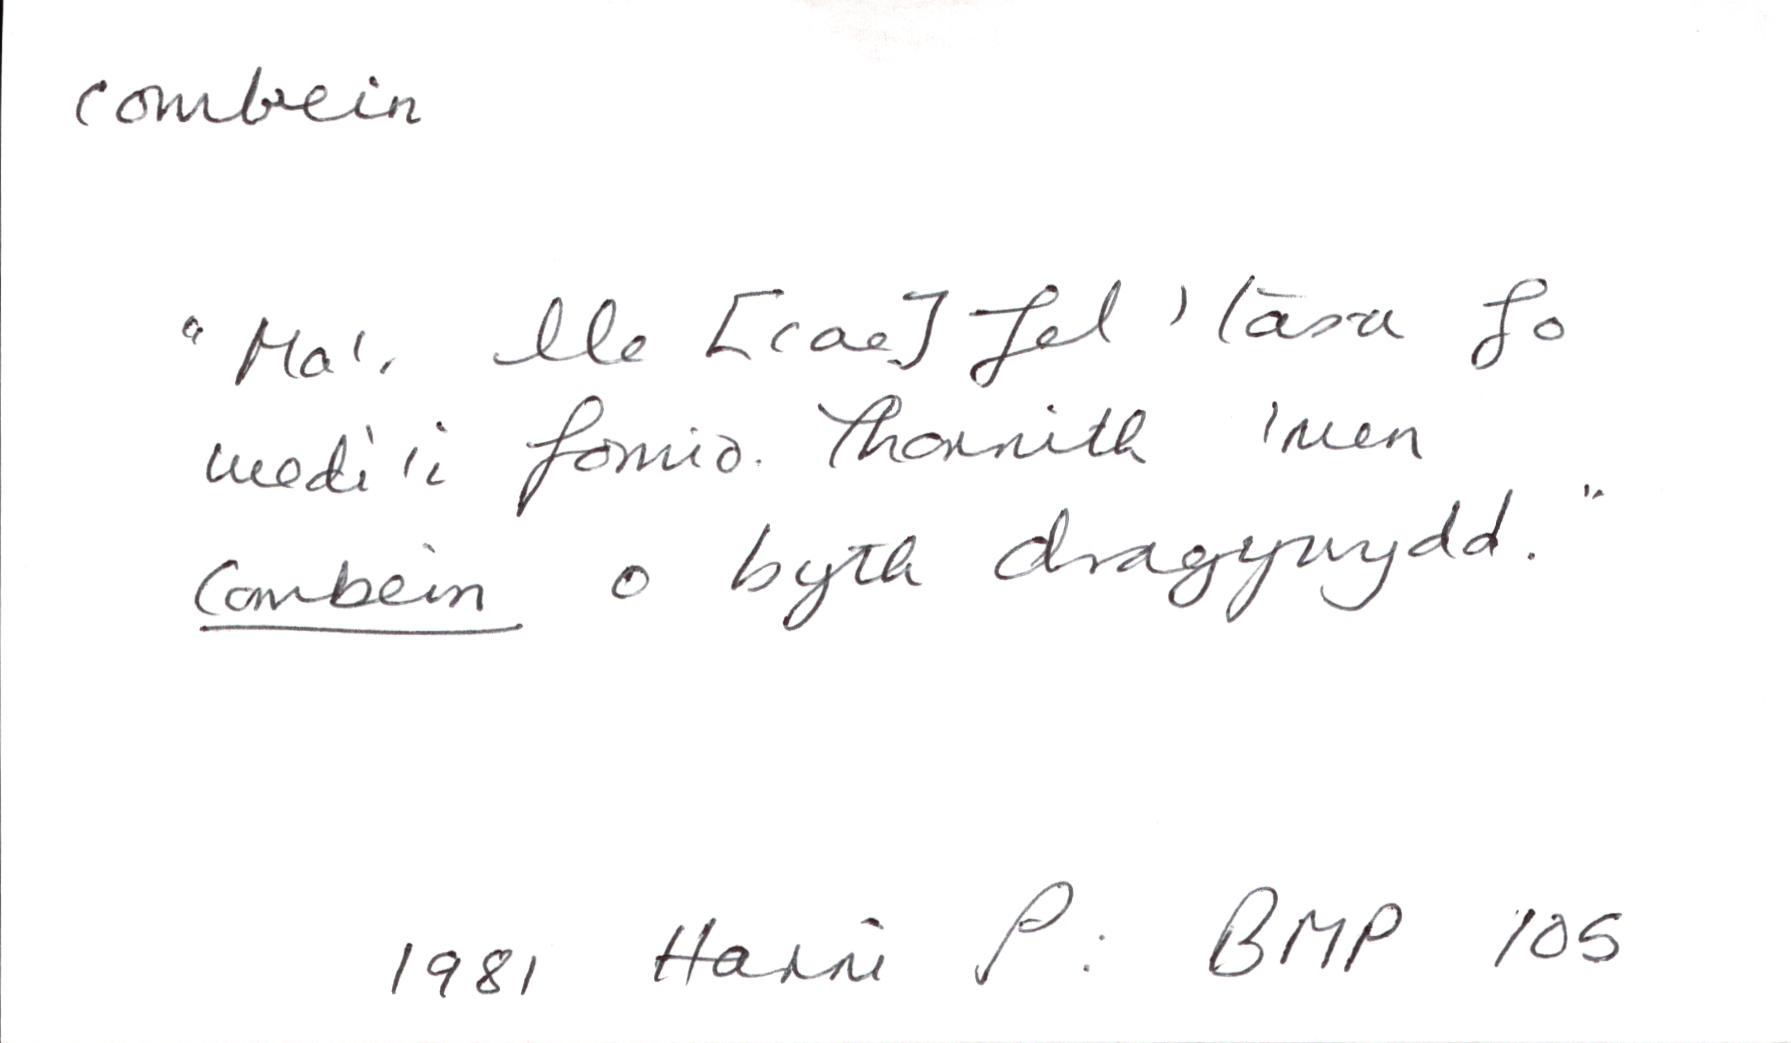 combein
"Ma'r lle [cae] fel 'tāsa fo
wedi'i fomio. Thorrith 'run
combein o byth dragywydd."
1981 Harri P: BMP 105